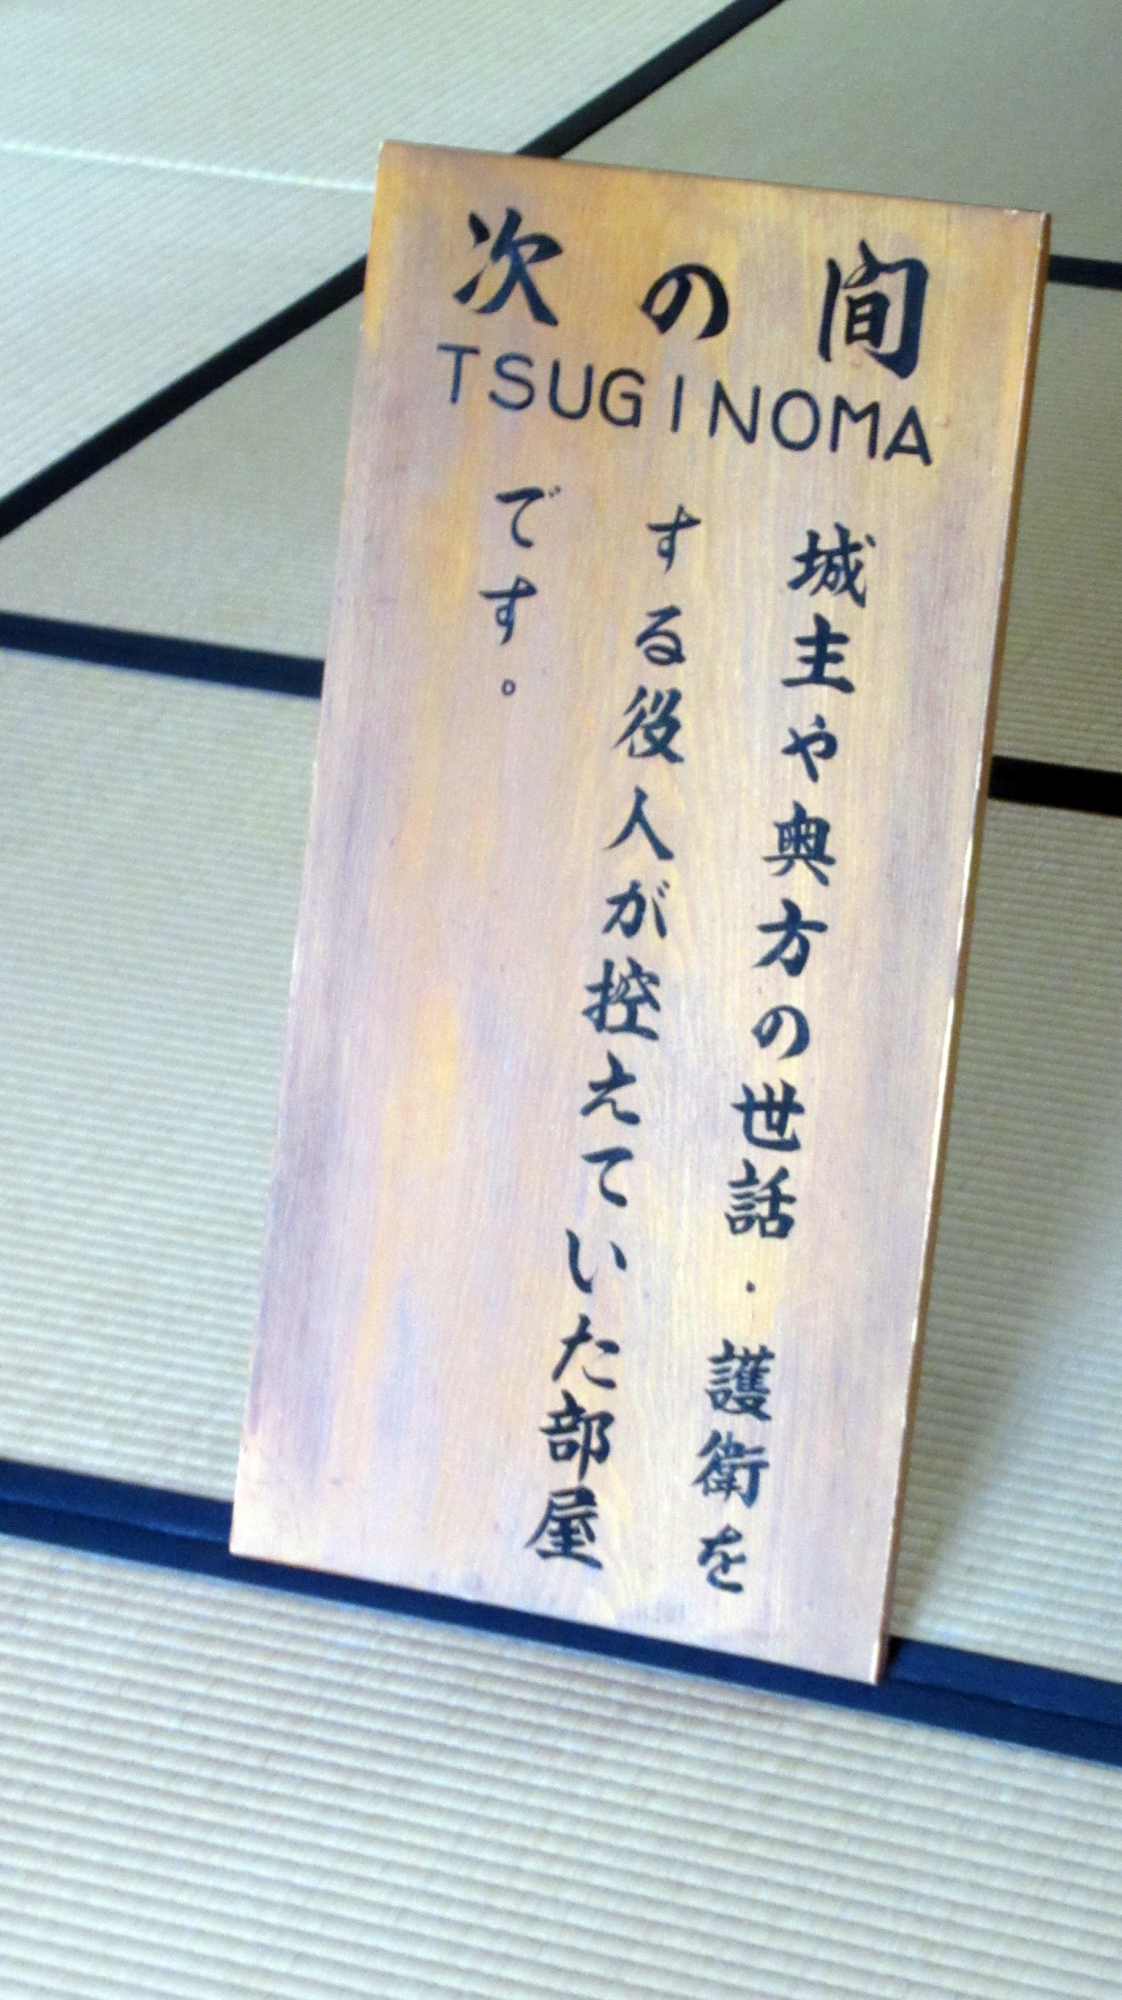 次の間
TSUGINOMA
城主や奥方の世話・護衛を
する役人が控えていた部屋
です。